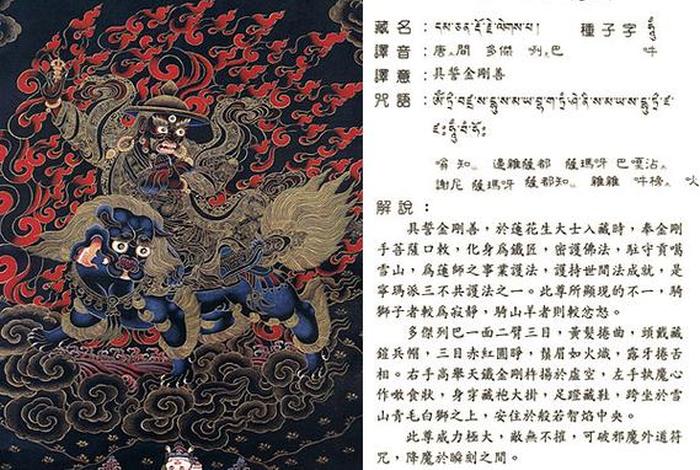 藏名：དམ་ཅན་རྡོ་རྗེ་ལེགས་པ། 種子字 ཧཱུྃ
譯音：唐間 多傑 咧巴 吽
譯意：具誓金剛善
咒語：
嗡 知 邊雜薩都 薩瑪呀 巴嘎沾
謝尼 薩瑪呀 薩都知 雜雜 吽榜
解說：
具誓金剛善，於蓮花生大士入藏時，奉金剛
手菩薩口敕，化身為鐵匠，密護佛法，駐守貢噶
雪山，為蓮師之事業護法，護持世間法成就，是
寧瑪派三不共護法之一。此尊所顯現的不一，騎
獅子者較為寂靜，騎山羊者則較忿怒。
多傑列巴一面二臂三目，黃髮捲曲，頭戴藏
鎧兵帽，三目赤紅圓睜，鬚眉如火熾，露牙捲舌
相。右手高舉天鐵金剛杵揚於虛空，左手執魔心
作噉食狀，身穿藏袍大掛，足蹬藏鞋，跨坐於雪
山青毛白獅之上，安住於般若智焰中央。
此尊威力極大，敵無不摧，可破邪魔外道符
咒，降魔於瞬刻之間。